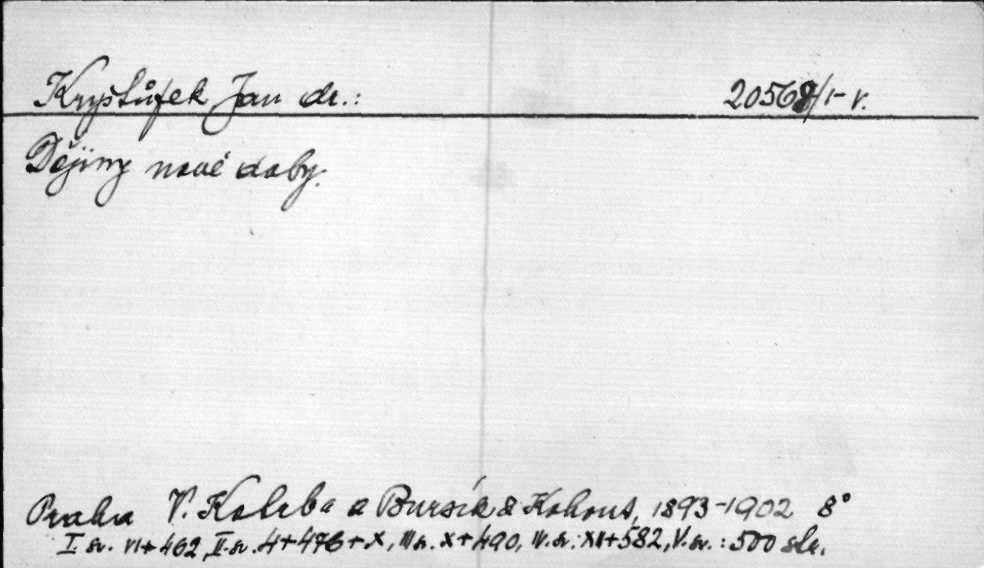 Kryštůfek Jan dr.: 20568/I-V.
Dějiny nové doby.
Praha V. Kotrba a Bursík & Kohout, 1893-1902 8°
I. sv. VI+462, II. sv. 4+476+X, III sv. X+490, IV. sv.: XII+582, V. sv.: 500 str.